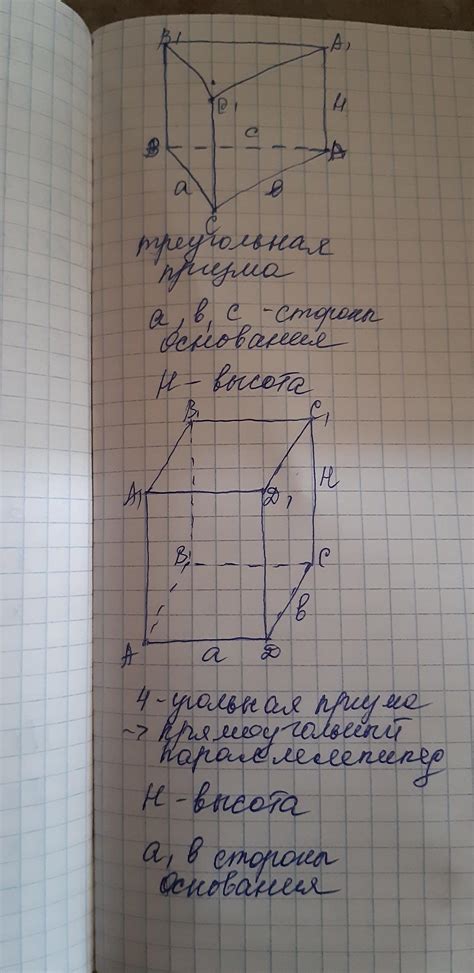 В₁ А₁
С₁ Н
В с А
а в
С
треугольная
призма
а, в, с - стороны
основания
Н - высота
В₁ С₁
А₁ Д₁ Н
В₁ С
в
А а Д
4-угольная призма
-> прямоугольный
параллелепипед
Н - высота
а, в стороны
основания